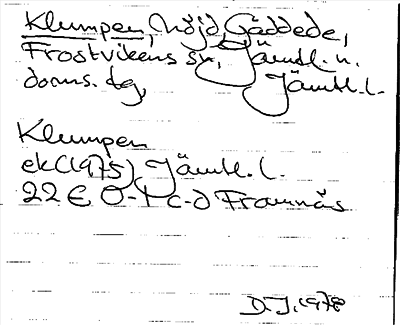 Klumpen, höjd Gäddede,
Frostvikens sn, Jämtl. n.
doms. tg, Jämtl.l.
Klumpen
ek(1975) Jämtl.l.
22 E 0-1 c-d Framnäs
D.J. 1978